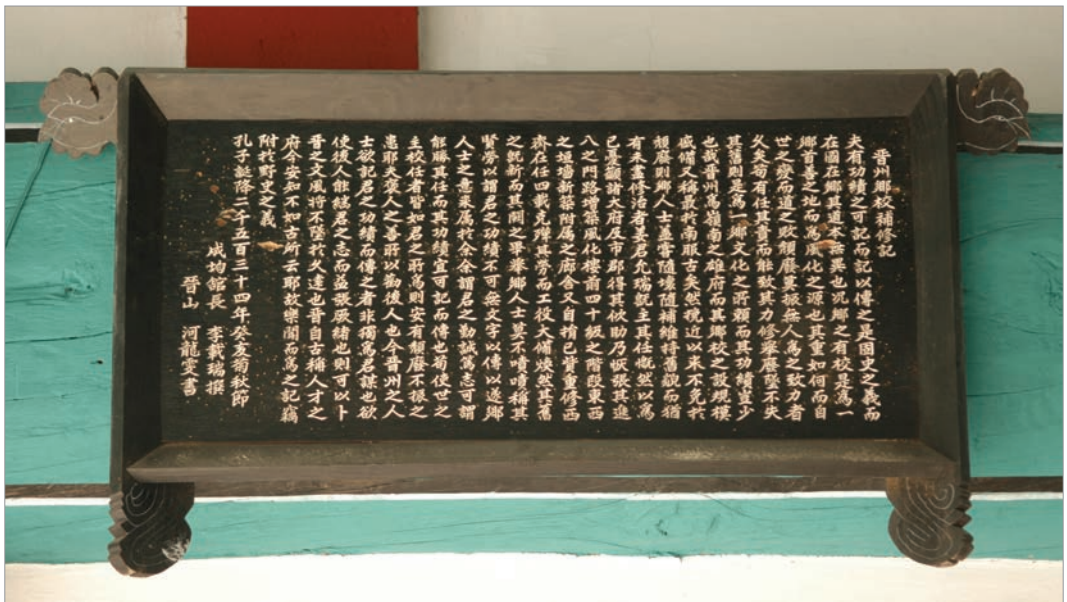 晉州鄕校補修記
夫有功績之可記而記以傳之是固史之義而
在國在鄕其道本無異也況鄕之有校是爲一
鄕首善之地而爲風化之源也其重如何而自
世之變而道之敗頹廢莫振無人爲之致力者
久矣苟有任其責而能致其力修擧廢墜不失
其舊則是爲一鄕文化之所賴而其功績豈少
也哉晉州爲嶺南之雄府而其鄕校之設規模
咸備又稱最於南服古矣然挽近以來不免於
頹廢則鄕人士盖嘗隨壞隨補維持舊觀而猶
有未盡修治者姜君允瑞就主其任慨然以爲
已憂籲諸大府及市郡得其佽助乃恢張其進
八之門路增築風化樓前四十級之階段東西
之垣墻新築附属之廊舍又自捐已貲重修西
齊在任四載克殫其勞而工役大備煥然其舊
之就新而其闕之畢擧鄕人士莫不嘖嘖稱其
賢勞以謂君之功績不可無文字以傳以遂鄕
人士之意來属於余余謂君之勤誠篤志可謂
能勝其任而其功績宜可記而傳也苟使世之
主校任者皆如君之所爲則安有頹廢不振之
患耶夫褒人之善所以勸後人也今晉州之人
士欲記君之功績而傳之者非獨爲君謀也欲
使後人能繼君之志而益張厥緖也則可以卜
晉之文風將不墜於久遠也晉自古稱人才之
府今安知不如古所云耶故樂聞而爲之記竊
附於野史之義
孔子誕降二千五百三十四年癸亥菊秋節
成均館長 李載瑞 撰
晉山 河龍雯 書